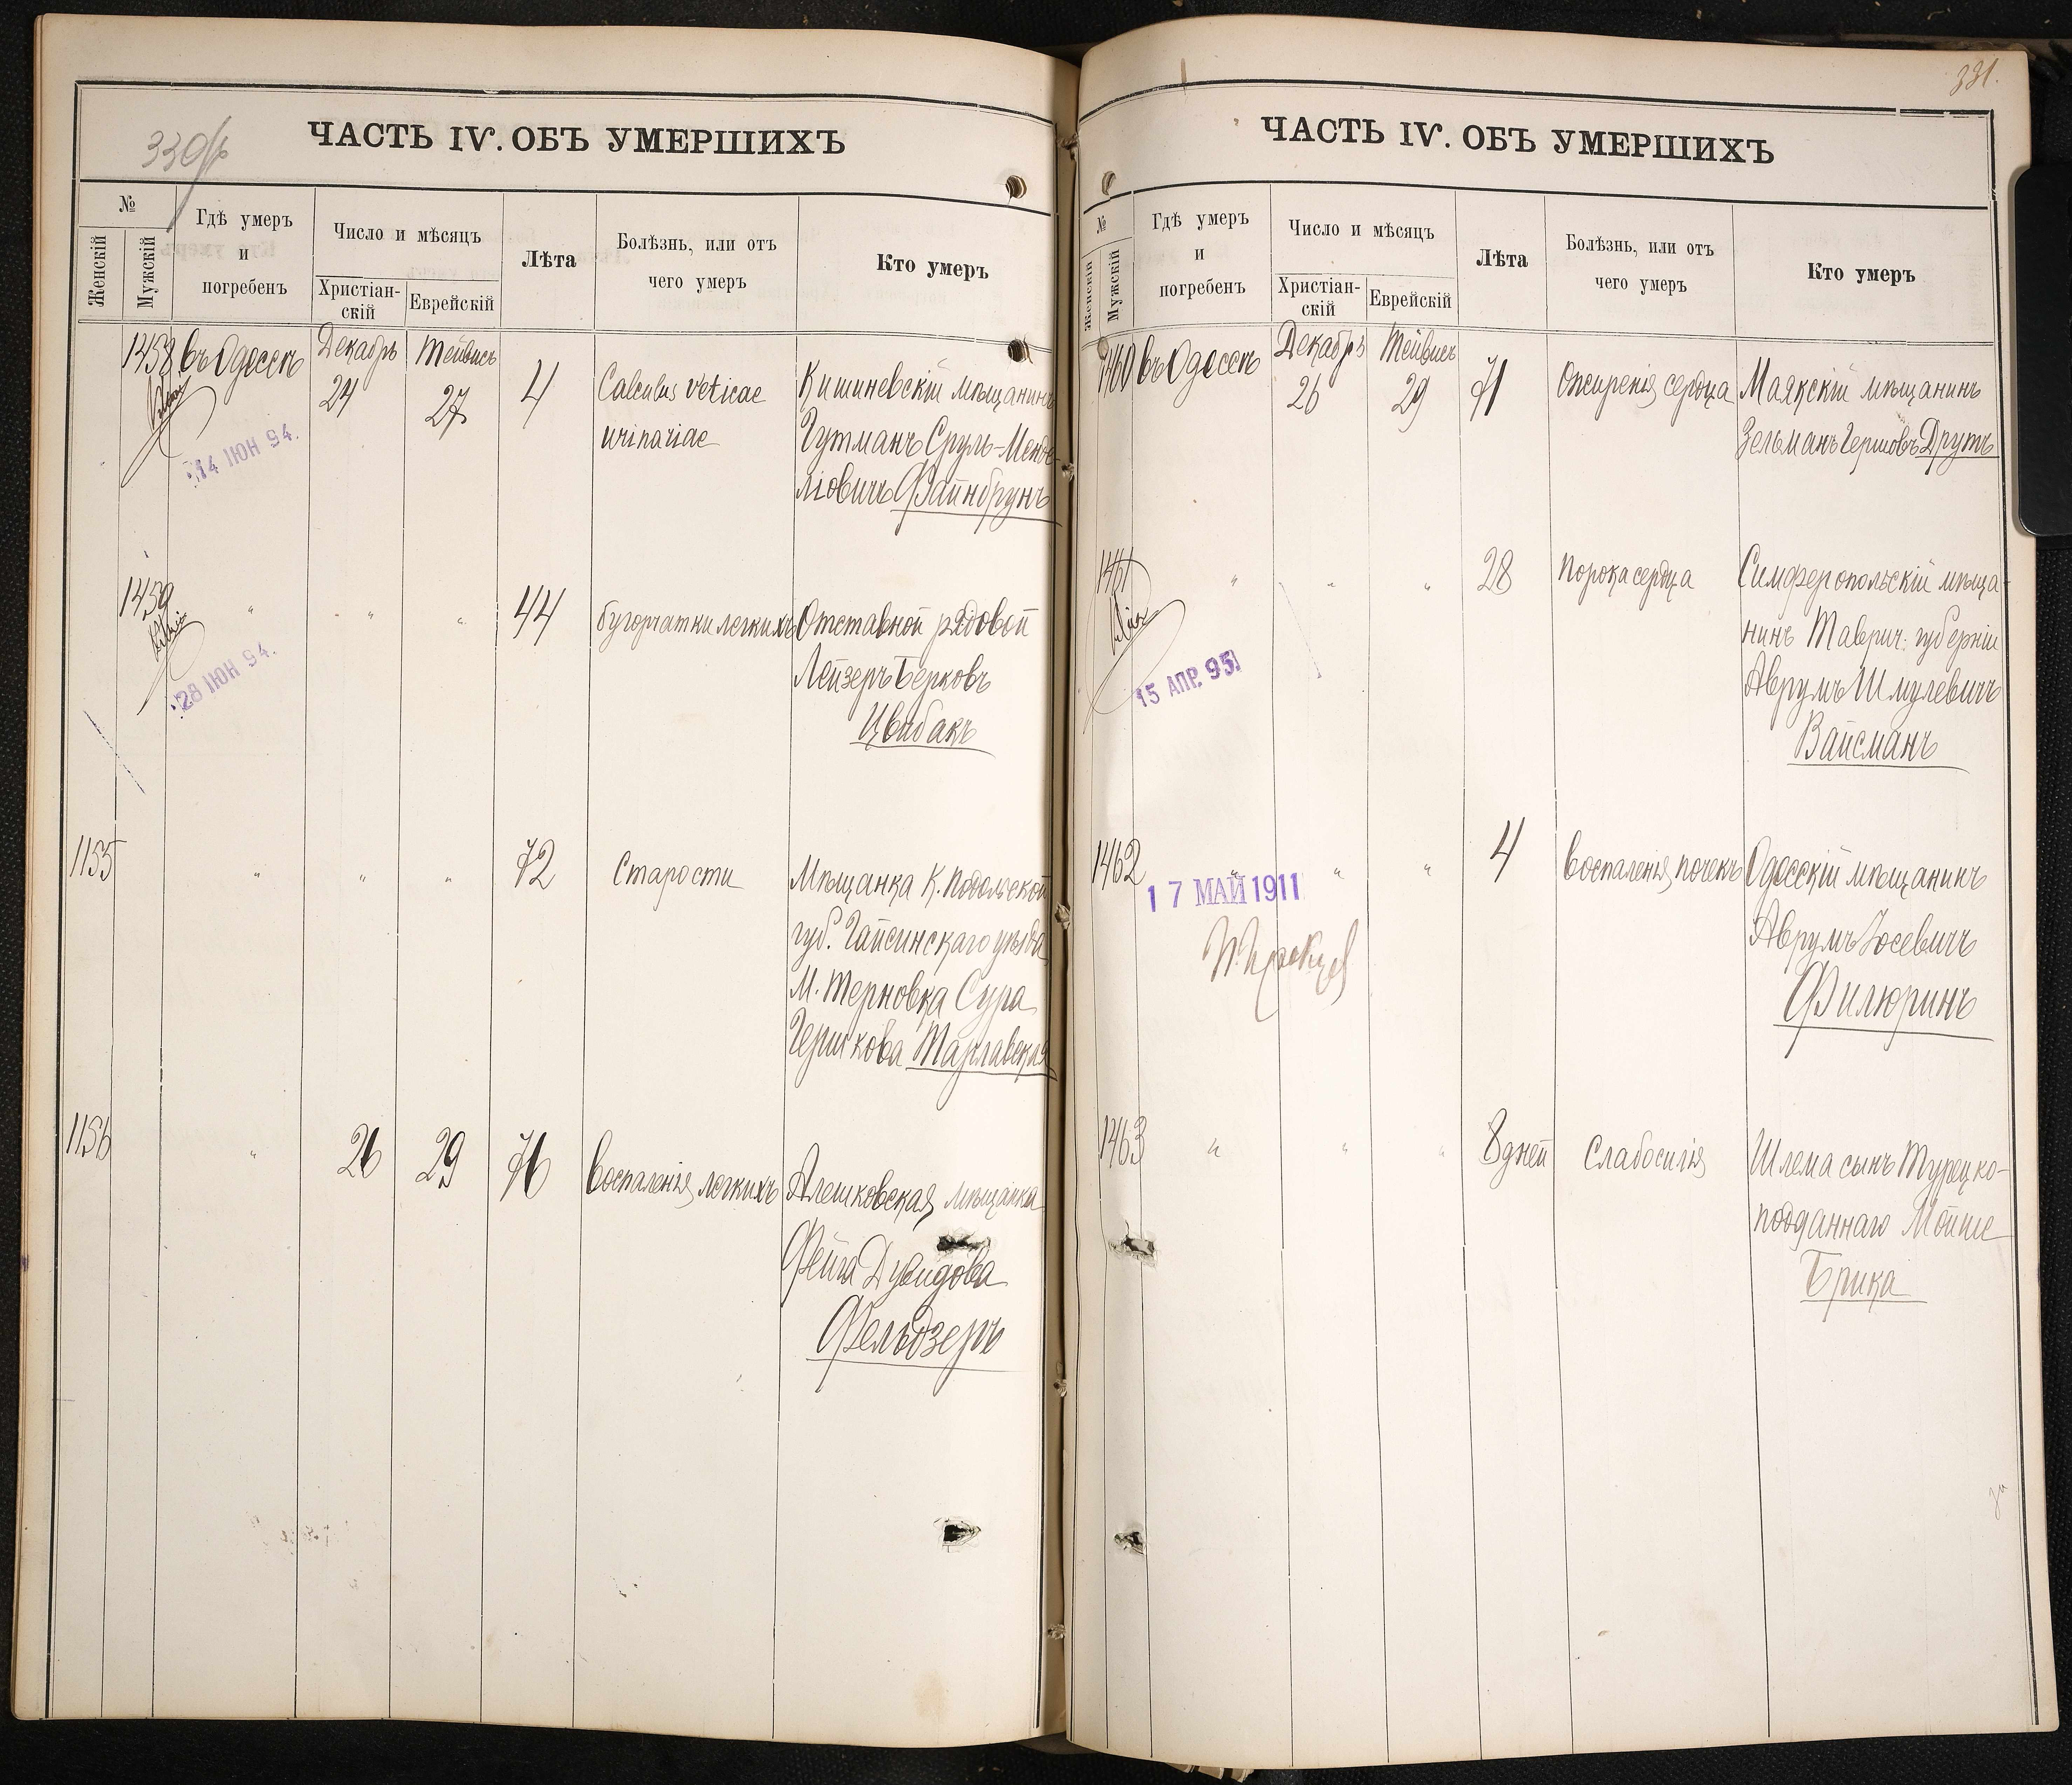 330 об
ЧАСТЬ IV. ОБЪ УМЕРШИХЪ
№
Женскій
Мужскій
Гдѣ умеръ
и
погребенъ
Число и мѣсяцъ
Христіан-
скій
Еврейскій
Лѣта
Болѣзнь, или отъ
чего умеръ
Кто умеръ
1458 въ Одессѣ Декабрь 24 Тейвисъ 27 4
Calculus veticae
urinariae
Кишиневскій мѣщанинъ
Гутманъ Сруль-Менде-
ліовичъ Файнбрунъ
14 ІЮН 94.
1459 " " " 44 бугорчатки легкихъ
Отставной рядовой
Лейзеръ Берковъ
Цвибакъ
28 ІЮН 94.
1155 " " " 72 Старости
Мѣщанка К. Подольской
губ. Гайсинскаго уѣзда
М. Терновка Сура
Гершкова Тарлавская
1156 " 26 29 76 Воспаленія легкихъ
Алешковская мѣщанка
Фейга Дувидова
Фельдзеръ
331.
ЧАСТЬ IV. ОБЪ УМЕРШИХЪ
№
Женскій
Мужскій
Гдѣ умеръ
и
погребенъ
Число и мѣсяцъ
Христіан-
скій
Еврейскій
Лѣта
Болѣзнь, или отъ
чего умеръ
Кто умеръ
1460 въ Одессѣ Декабрь 26 Тейвисъ 29 71 Ожиренія сердца
Маякскій мѣщанинъ
Зельманъ Гершовъ Друтъ
1461 " " " 28 Порока сердца
Симферопольскій мѣща-
нинъ Таврич. губерніи
Аврумъ Шмулевичъ
Вайсманъ
15 АПР. 95
1462 " " " 4 Воспаленія почекъ
Одесскій мѣщанинъ
Аврумъ Іосевичъ
Филюринъ
17 МАЙ 1911
1463 " " " 8 дней Слабосилія
Шлема сынъ Турецко-
подданнаго Мойше
Брика